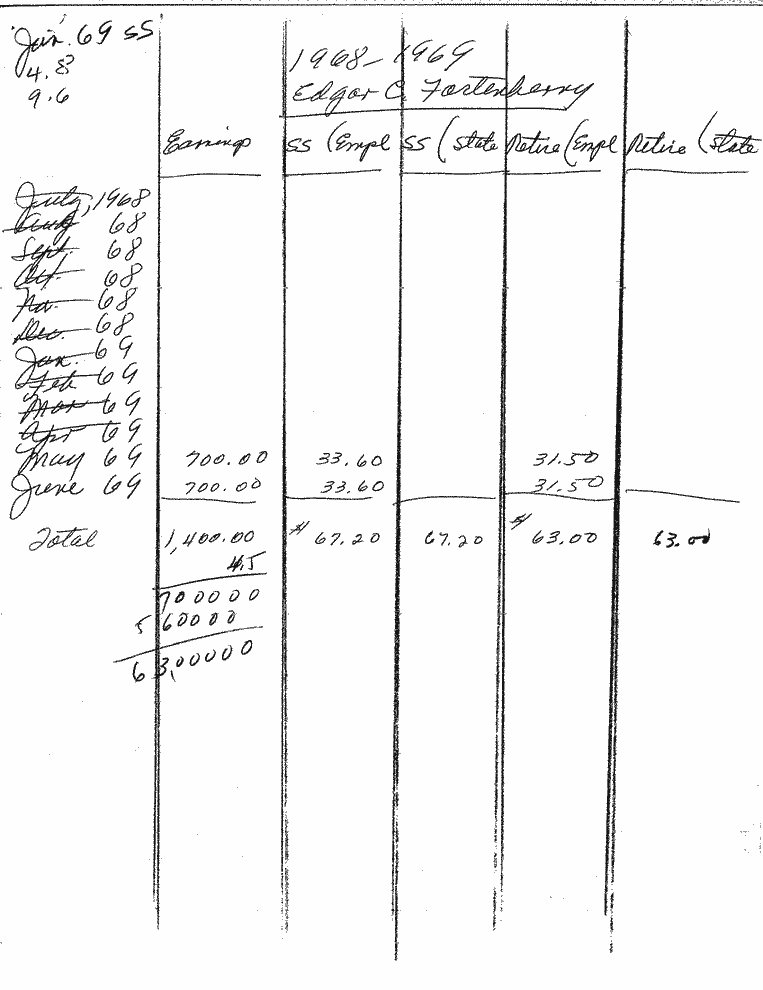 Jan. 69 SS
4.8
9.6
1968-1969
Edgar C. Fortenberry
Earnings SS (Empl SS (State Retire (Empl Retire (State
July, 1968
Aug 68
Sept. 68
Oct. 68
No. 68
Dec. 68
Jan. 69
Feb 69
Mar 69
Apr 69
May 69 700.00 33.60 31.50
June 69 700.00 33.60 31.50
Total 1,400.00 $67.20 67.20 $63.00 63.00
4.5
700000
560000
63,00000